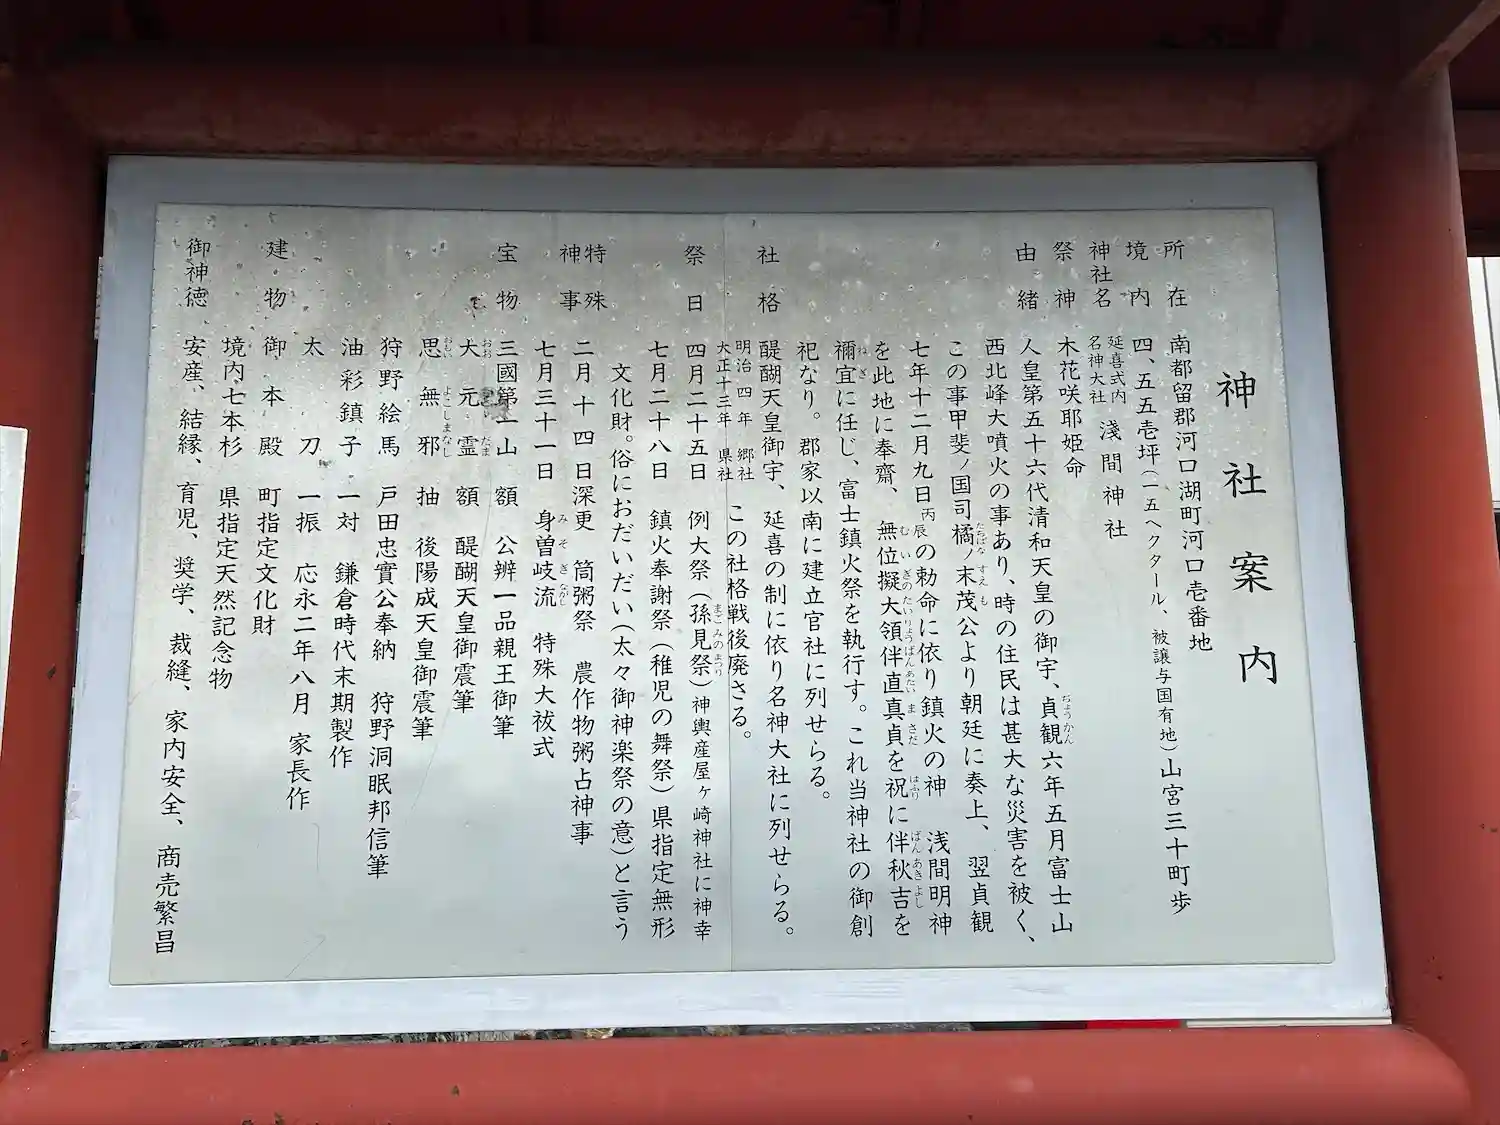 神社案内
所在　南都留郡河口湖町河口壱番地
境内　四、五五壱坪（一五ヘクタール、被譲与国有地）山宮三十町歩
神社名　延喜式内名神大社　淺間神社
祭神　木花咲耶姫命
由緒　人皇第五十六代清和天皇の御宇、貞観六年五月富士山
西北峰大噴火の事あり、時の住民は甚大な災害を被く、
この事甲斐ノ国司橘ノ末茂公より朝廷に奏上、翌貞観
七年十二月九日丙辰の勅命に依り鎮火の神　浅間明神
を此地に奉齋、無位擬大領伴直真貞を祝に伴秋吉を
禰宜に任じ、富士鎮火祭を執行す。これ当神社の御創
祀なり。郡家以南に建立官社に列せらる。
社格　醍醐天皇御宇、延喜の制に依り名神大社に列せらる。
明治四年　郷社
大正十三年　県社　この社格戦後廃さる。
祭日　四月二十五日　例大祭（孫見祭）神輿産屋ヶ崎神社に神幸
七月二十八日　鎮火奉謝祭（稚児の舞祭）県指定無形
文化財。俗におだいだい（太々御神楽祭の意）と言う
特殊神事　二月十四日深更　筒粥祭　農作物粥占神事
七月三十一日　身曽岐流　特殊大祓式
宝物　三國第一山　額　公辨一品親王御筆
大元霊　額　醍醐天皇御震筆
思無邪　抽　後陽成天皇御震筆
狩野絵馬　戸田忠實公奉納　狩野洞眠邦信筆
油彩鎮子　一対　鎌倉時代末期製作
太刀　一振　応永二年八月　家長作
建物　御本殿　町指定文化財
境内七本杉　県指定天然記念物
御神徳　安産、結縁、育児、奨学、裁縫、家内安全、商売繁昌